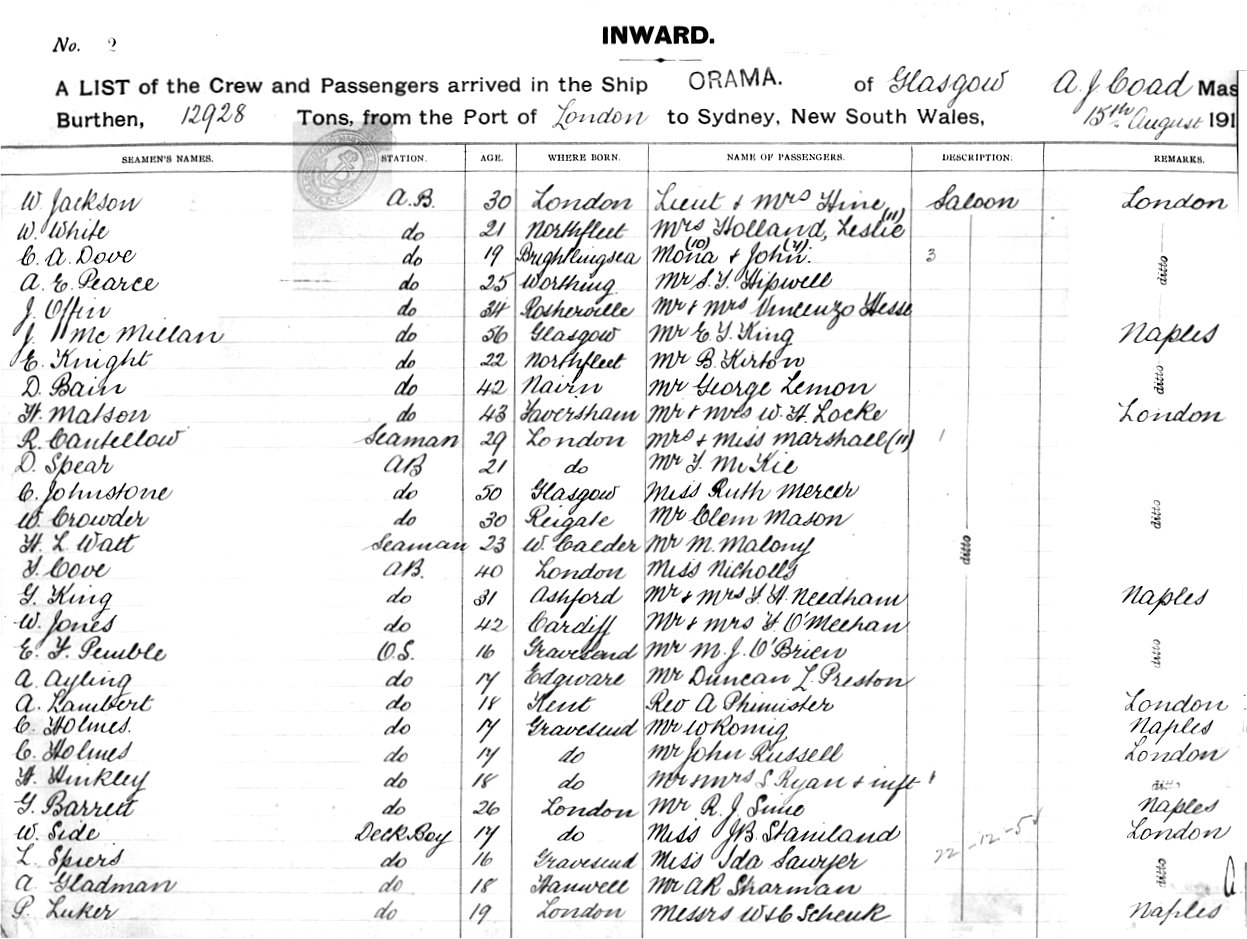 No. 2
INWARD.
A LIST of the Crew and Passengers arrived in the Ship ORAMA. of Glasgow A. J. Coad Mas
Burthen, 12928 Tons, from the Port of London to Sydney, New South Wales, 15th August 191
SEAMEN'S NAMES. STATION. AGE. WHERE BORN. NAME OF PASSENGERS. DESCRIPTION. REMARKS.
W. Jackson A.B. 30 London Lieut & Mrs Hine Saloon London
W. White do 21 Northfleet Mrs Holland, Leslie (11)
C. A. Dove do 19 Brightlingsea Mona (10) & John. 3 ditto
A. E. Pearce do 25 Worthing Mr S. Y. Hipwell
J. Offin do 34 Rosherville Mr & Mrs Vincenzo Hesse
J. McMillan do 56 Glasgow Mr E. Y. King Naples
E. Knight do 22 Northfleet Mr B. Kirton
D. Bain do 42 Nairn Mr George Lemon ditto
H. Matson do 43 Faversham Mr & Mrs W. H. Locke London
R. Cantellow Seaman 29 London Mrs & Miss Marshall (11) 1
D. Spear AB 21 do Mr Y. McKie
C. Johnstone do 50 Glasgow Miss Ruth Mercer
W. Crowder do 30 Reigate Mr Clem Mason ditto
H. L. Watt Seaman 23 W. Calder Mr M. Malony ditto
F. Cove AB. 40 London Miss Nicholls
G. King do 31 Ashford Mr & Mrs F. H. Needham Naples
W. Jones do 42 Cardiff Mr & Mrs H O'Meehan
E. F. Pemble O.S. 16 Gravesend Mr M. J. O'Brien ditto
A. Ayling do 17 Edgware Mr Duncan L. Preston
A. Lambert do 18 Kent Rev A Phimister London
C. Holmes. do 17 Gravesend Mr W Romig Naples
C. Holmes do 17 do Mr John Russell London
H. Hinkley do 18 do Mr & Mrs S Ryan & inft 1 ditto
G. Barrett do 26 London Mr R. J. Sime Naples
W. Side Deck Boy 17 do Miss J B Staniland London
L. Spiers do 16 Gravesend Miss Ida Sawyer 22-12-5
A Gladman do 18 Hanwell Mr AR Sharman ditto
P. Luker do 19 London Messrs W & C Schenk Naples